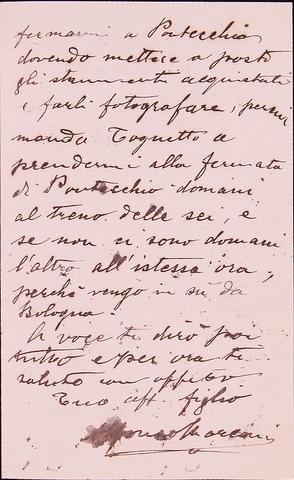 fermarmi a Pontecchio
dovendo mettere a posto
gli strumenti acquistati
e farli fotografare, perciò
manda Tognetto a
prendermi alla fermata
di Pontecchio domani
al treno delle sei, e
se non ci sono domani
l'altro all'istessa ora,
perchè vengo in su da
Bologna.
A voce ti dirò poi
tutto e per ora ti
saluto con affetto
Tuo aff. figlio
Alfonso Marconi